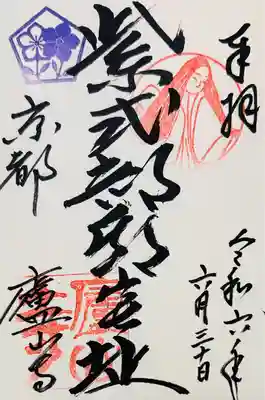 奉拝
令和六年
六月三十日
紫式部邸宅址
京都
廬山寺